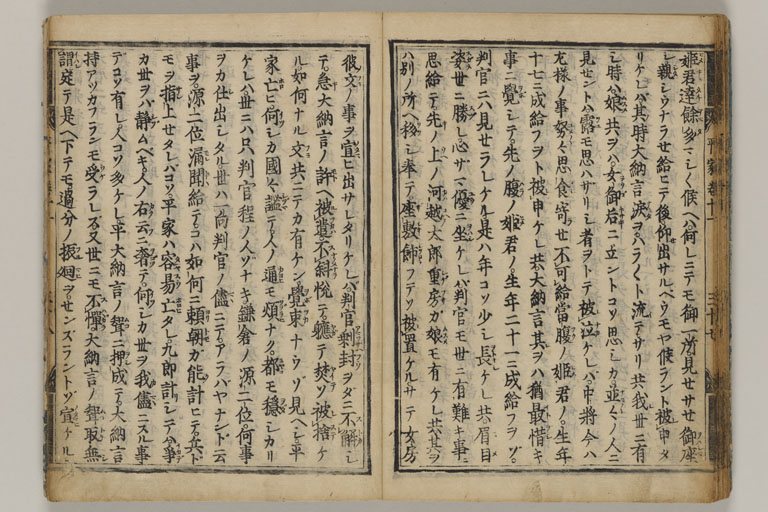 姫君達餘多ニシ〱候ヘハ何レニテモ御一所見セサセ御座
シ親シウナラセ給ヒテ後仰出サルベウモヤ候ラント被申タ
リケレバ其時大納言淚ヲハラ〱ト流テサリ共我世ニ有
シ時ハ娘共ヲハ女御后ニ立ントコソ思シカ並〱ノ人ニ
見セントハ露モ思ハサリシ者ヲトテ被泣ケレバ中將今ハ
尤樣ノ事努〱思食寄セ不可給當腹ノ姬君ノ生年
十七ニ成給フヲト被申ケレ共大納言其ヲハ猶最惜キ
事ニ覺シテ先ノ腹ノ姬君ノ生年二十一ニ成給フヲソ
判官ニハ見セラレケル是ハ年コソ少シ長ケレ共眉目
姿世ニ勝レ心サマ優ニ坐ケレバ判官モ世ニ有難キ事ニ
思給テ先ノ上ノ河越太郎重房ガ娘モ有ケレ共其ヲ
ハ別ノ所ヘ移シ奉テ座敷餝フテソ被置ケルサテ女房
平家卷十一 三十七
彼文ノ事ヲ宣ヒ出サレタリケレバ判官剩封ヲダニ不解シ
テ急大納言ノ許ヘ被遣不斜悅テ軈テ焚ソ被捨ケ
ル如何ナル文共ニテカ有ケン覺束ナウゾ見ヘシ平
家亡ヒ何シカ國〱謐テ人ノ通モ煩ナク都モ穩シカリ
ケレバ世ニハ只判官程ノ人ゾナキ鎌倉ノ源二位何事
ヲカ仕出シタル世ハ一向判官ノ儘ニテアラバヤナント云
事ヲ源二位漏聞給テコハ如何ニ賴朝ガ能計ヒテ兵ド
モヲ指上セタレバコソ平家ハ容易亡タレ九郎計シテハ爭
カ世ヲバ靜ムベキ人ノ右云ニ奢テ何シカ世ヲ我儘ニスル事
デコソ有レ人コソ多ケレ平大納言ノ聟ニ押成テ大納言
持アツカフランモ受ラレズ又世ニモ不憚大納言ノ聟取無
謂定テ是ヘ下テモ過分ノ振廻ヲゾセンズラントゾ宣ケル